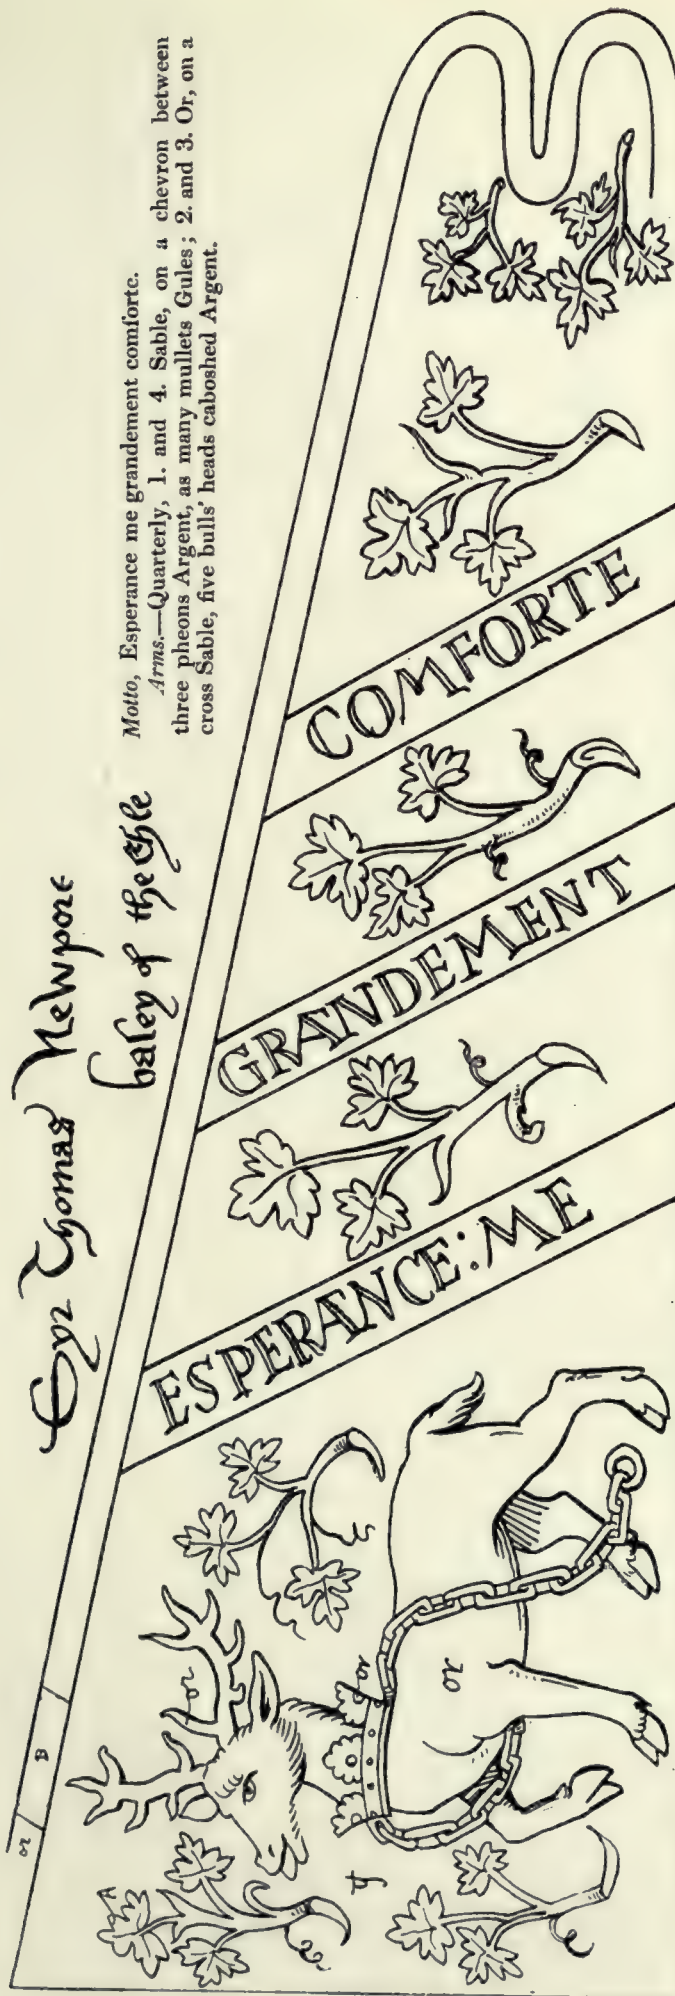 Syr Thomas Newport
baley of the Egle
Motto, Esperance me grandement comforte.
Arms.—Quarterly, 1. and 4. Sable, on a chevron between
three pheons Argent, as many mullets Gules; 2. and 3. Or, on a
cross Sable, five bulls' heads caboshed Argent.
or
B
or
or
or
ESPERANCE: ME
GRANDEMENT
COMFORTE